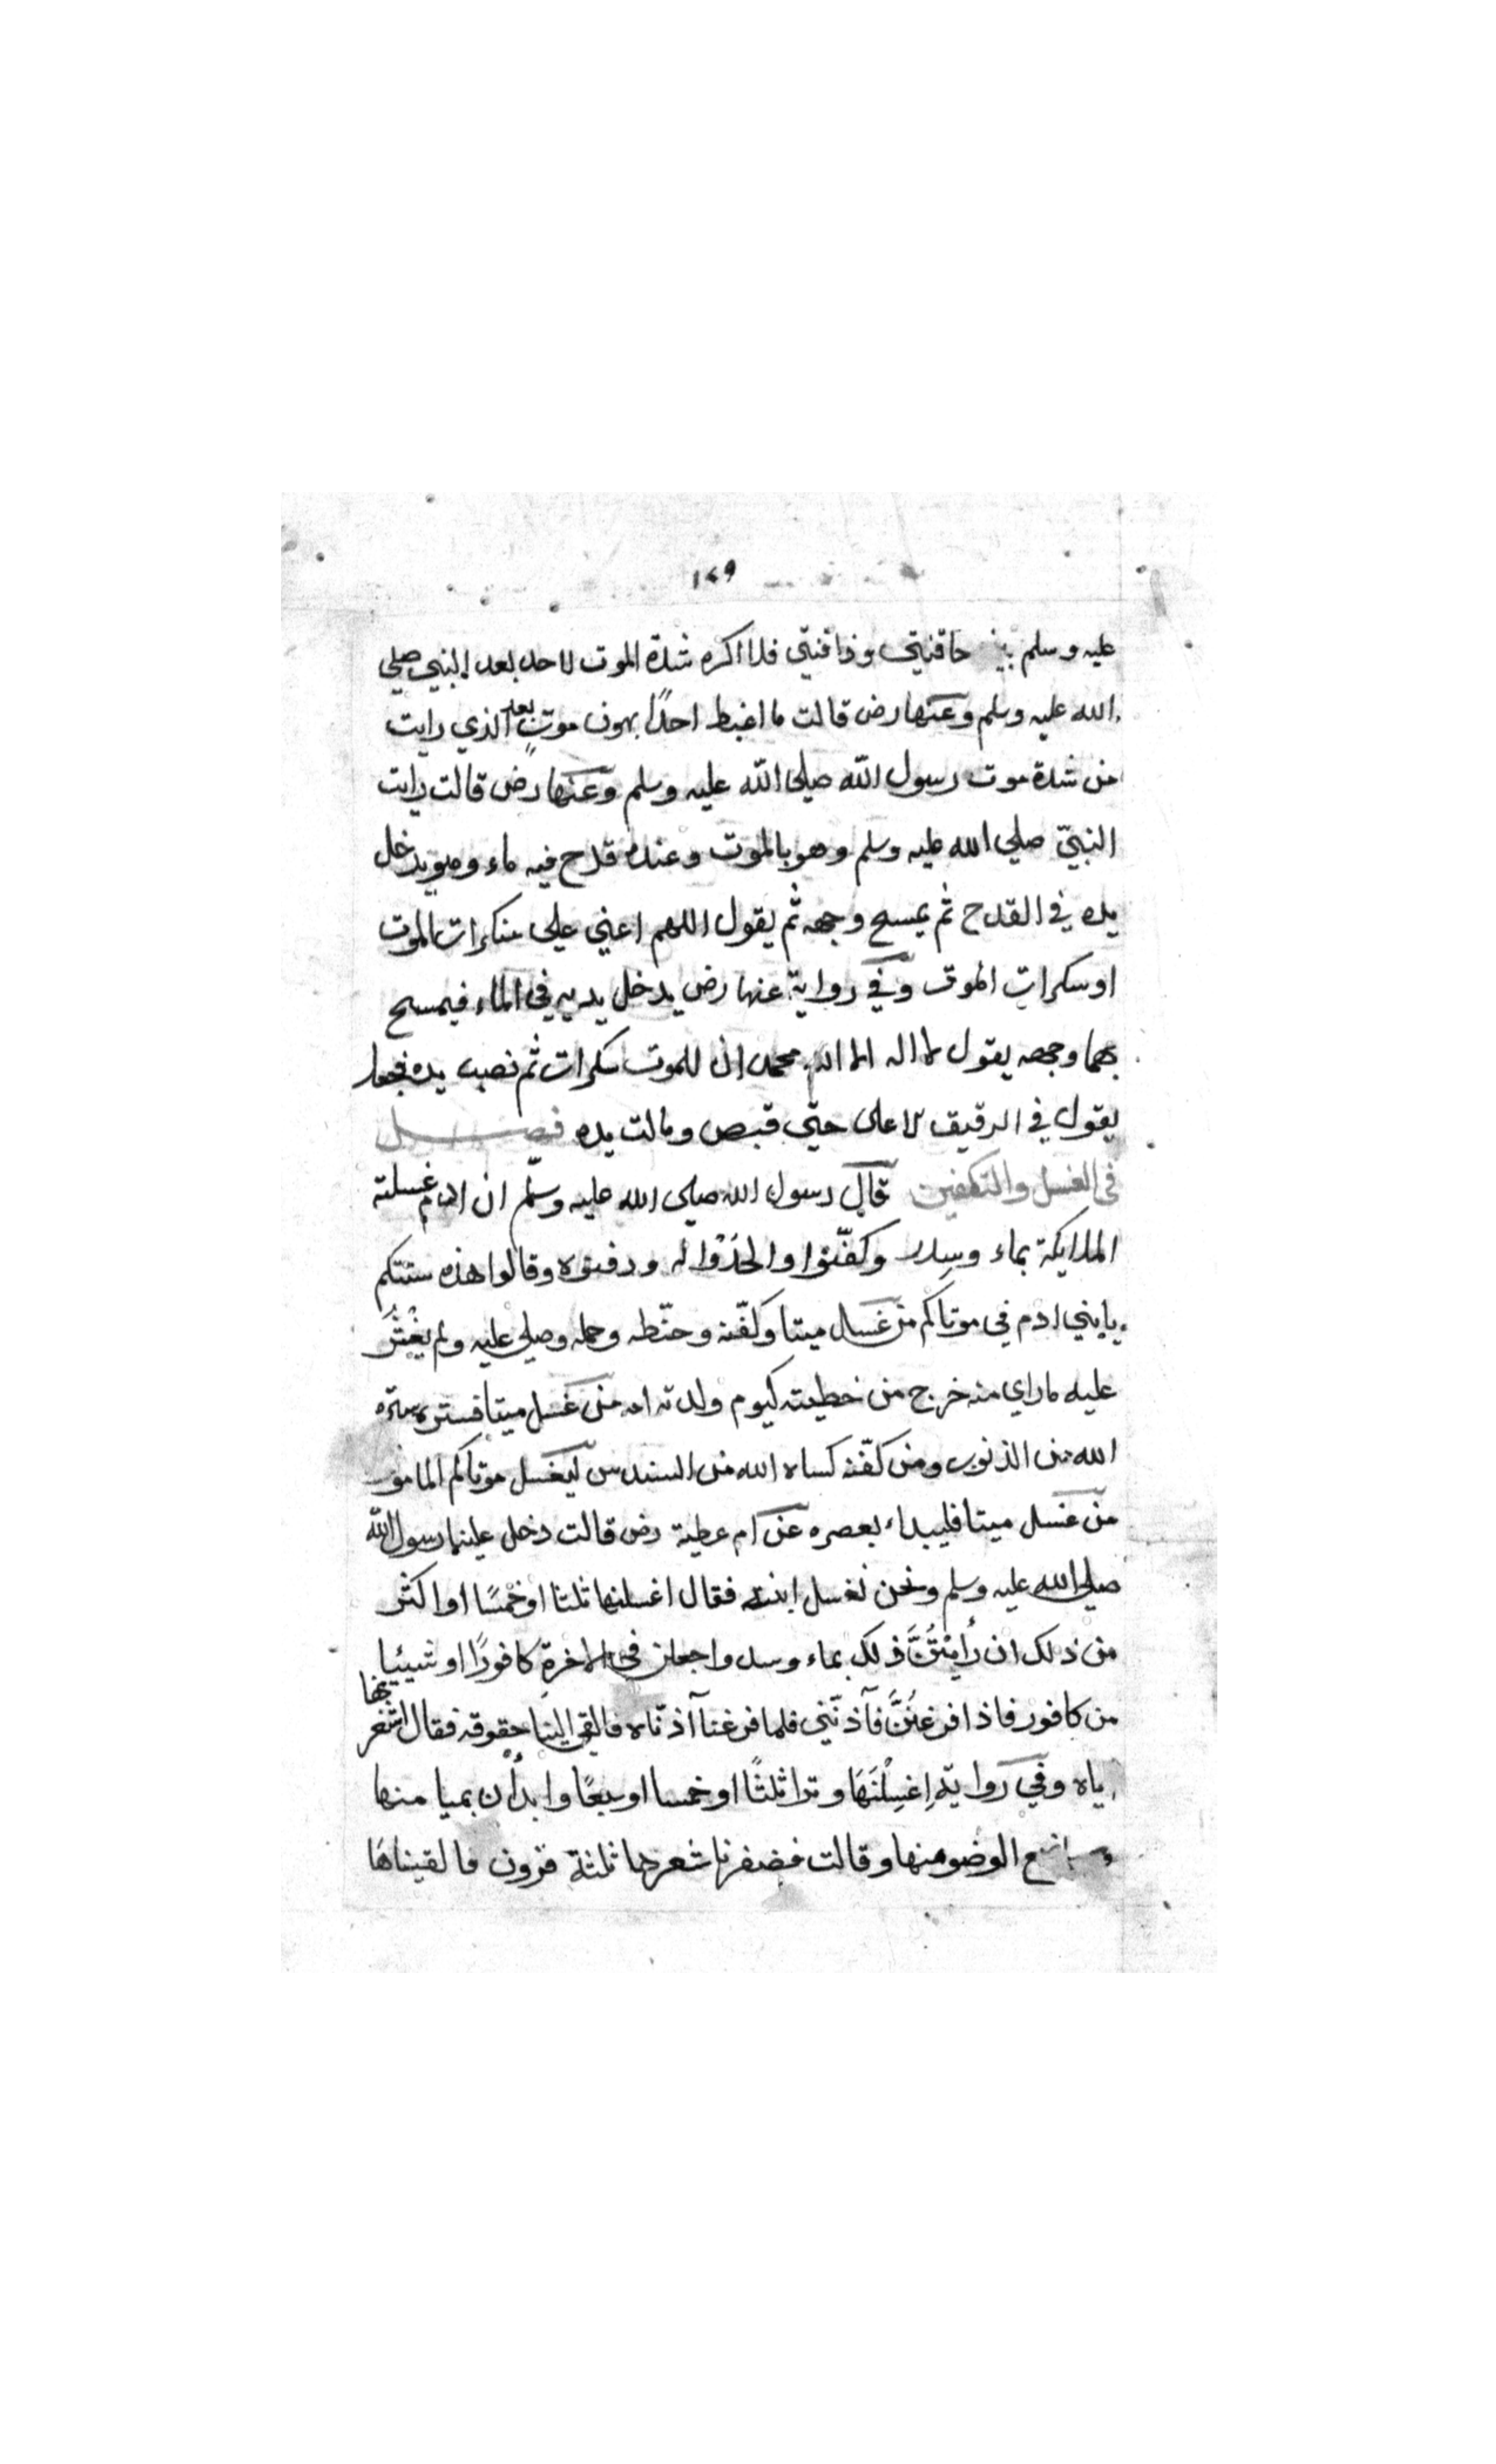 ١٤٩
عليه وسلم بين حاقنتي وذاقنتي فلا اكره شدة الموت لاحد بعد النبي صلي
الله عليه وسلم وعنها رض قالت ما اغبط احدًا بهون موتٍ بعد الذي رايت
من شدة موت رسول الله صلى الله عليه وسلم وعنها رض قالت رايت
النبيّ صلي الله عليه وسلم وهو بالموت وعنده قدح فيه ماء وهو يدخل
يده في القدح ثم يمسح وجهه ثم يقول اللهم اعني علي منكرات الموت
او سكرات الموت وفي رواية عنها رض يدخل يديه في الماء فيمسح
بهما وجهه يقول لا اله الا الله محمد ان للموت سكرات ثم نصب يده فجعل
يقول في الرفيق الاعلى حتي قبض ومالت يده فصل
في الغسل والتكفين قال رسول الله صلى الله عليه وسلم ان ادم غسلته
الملايكة بماء وسدر وكفّنوا والحدوا له ودفنوه وقالوا هذه سنتكم
يا بني ادم في موتاكم من غسل ميتا وكفّنه وحنّطه وحمله وصلي عليه ولم يُفْشِ
عليه ما راي منه خرج من خطيته كيوم ولدته امه من غسل ميتا فستره ستره
الله من الذنوب ومن كفّنه كساه الله من السندس ليغسل موتاكم المامونون
من غسل ميتا فليبداء بعصره عن ام عطية رض قالت دخل علينا رسول الله
صلى الله عليه وسلم ونحن نغسل ابنته فقال اغسلنها ثلثا او خمسًا او اكثر
من ذلك ان رأيتُنَّ ذلك بماء وسدر واجعلن في الاخرة كافورًا او شيئا
من كافور فاذا فرغتُنَّ فآذنّني فلما فرغنا آذنّاه فالقي الينا حقوه فقال اشعرنها
اياه وفي رواية اِغسِلْنَهَا وترا ثلثًا او خمسا او سبعًا وابدأن بميامنها
ومواضع الوضو منها وقالت فضفرنا شعرها ثلثة قرون فالقيناها